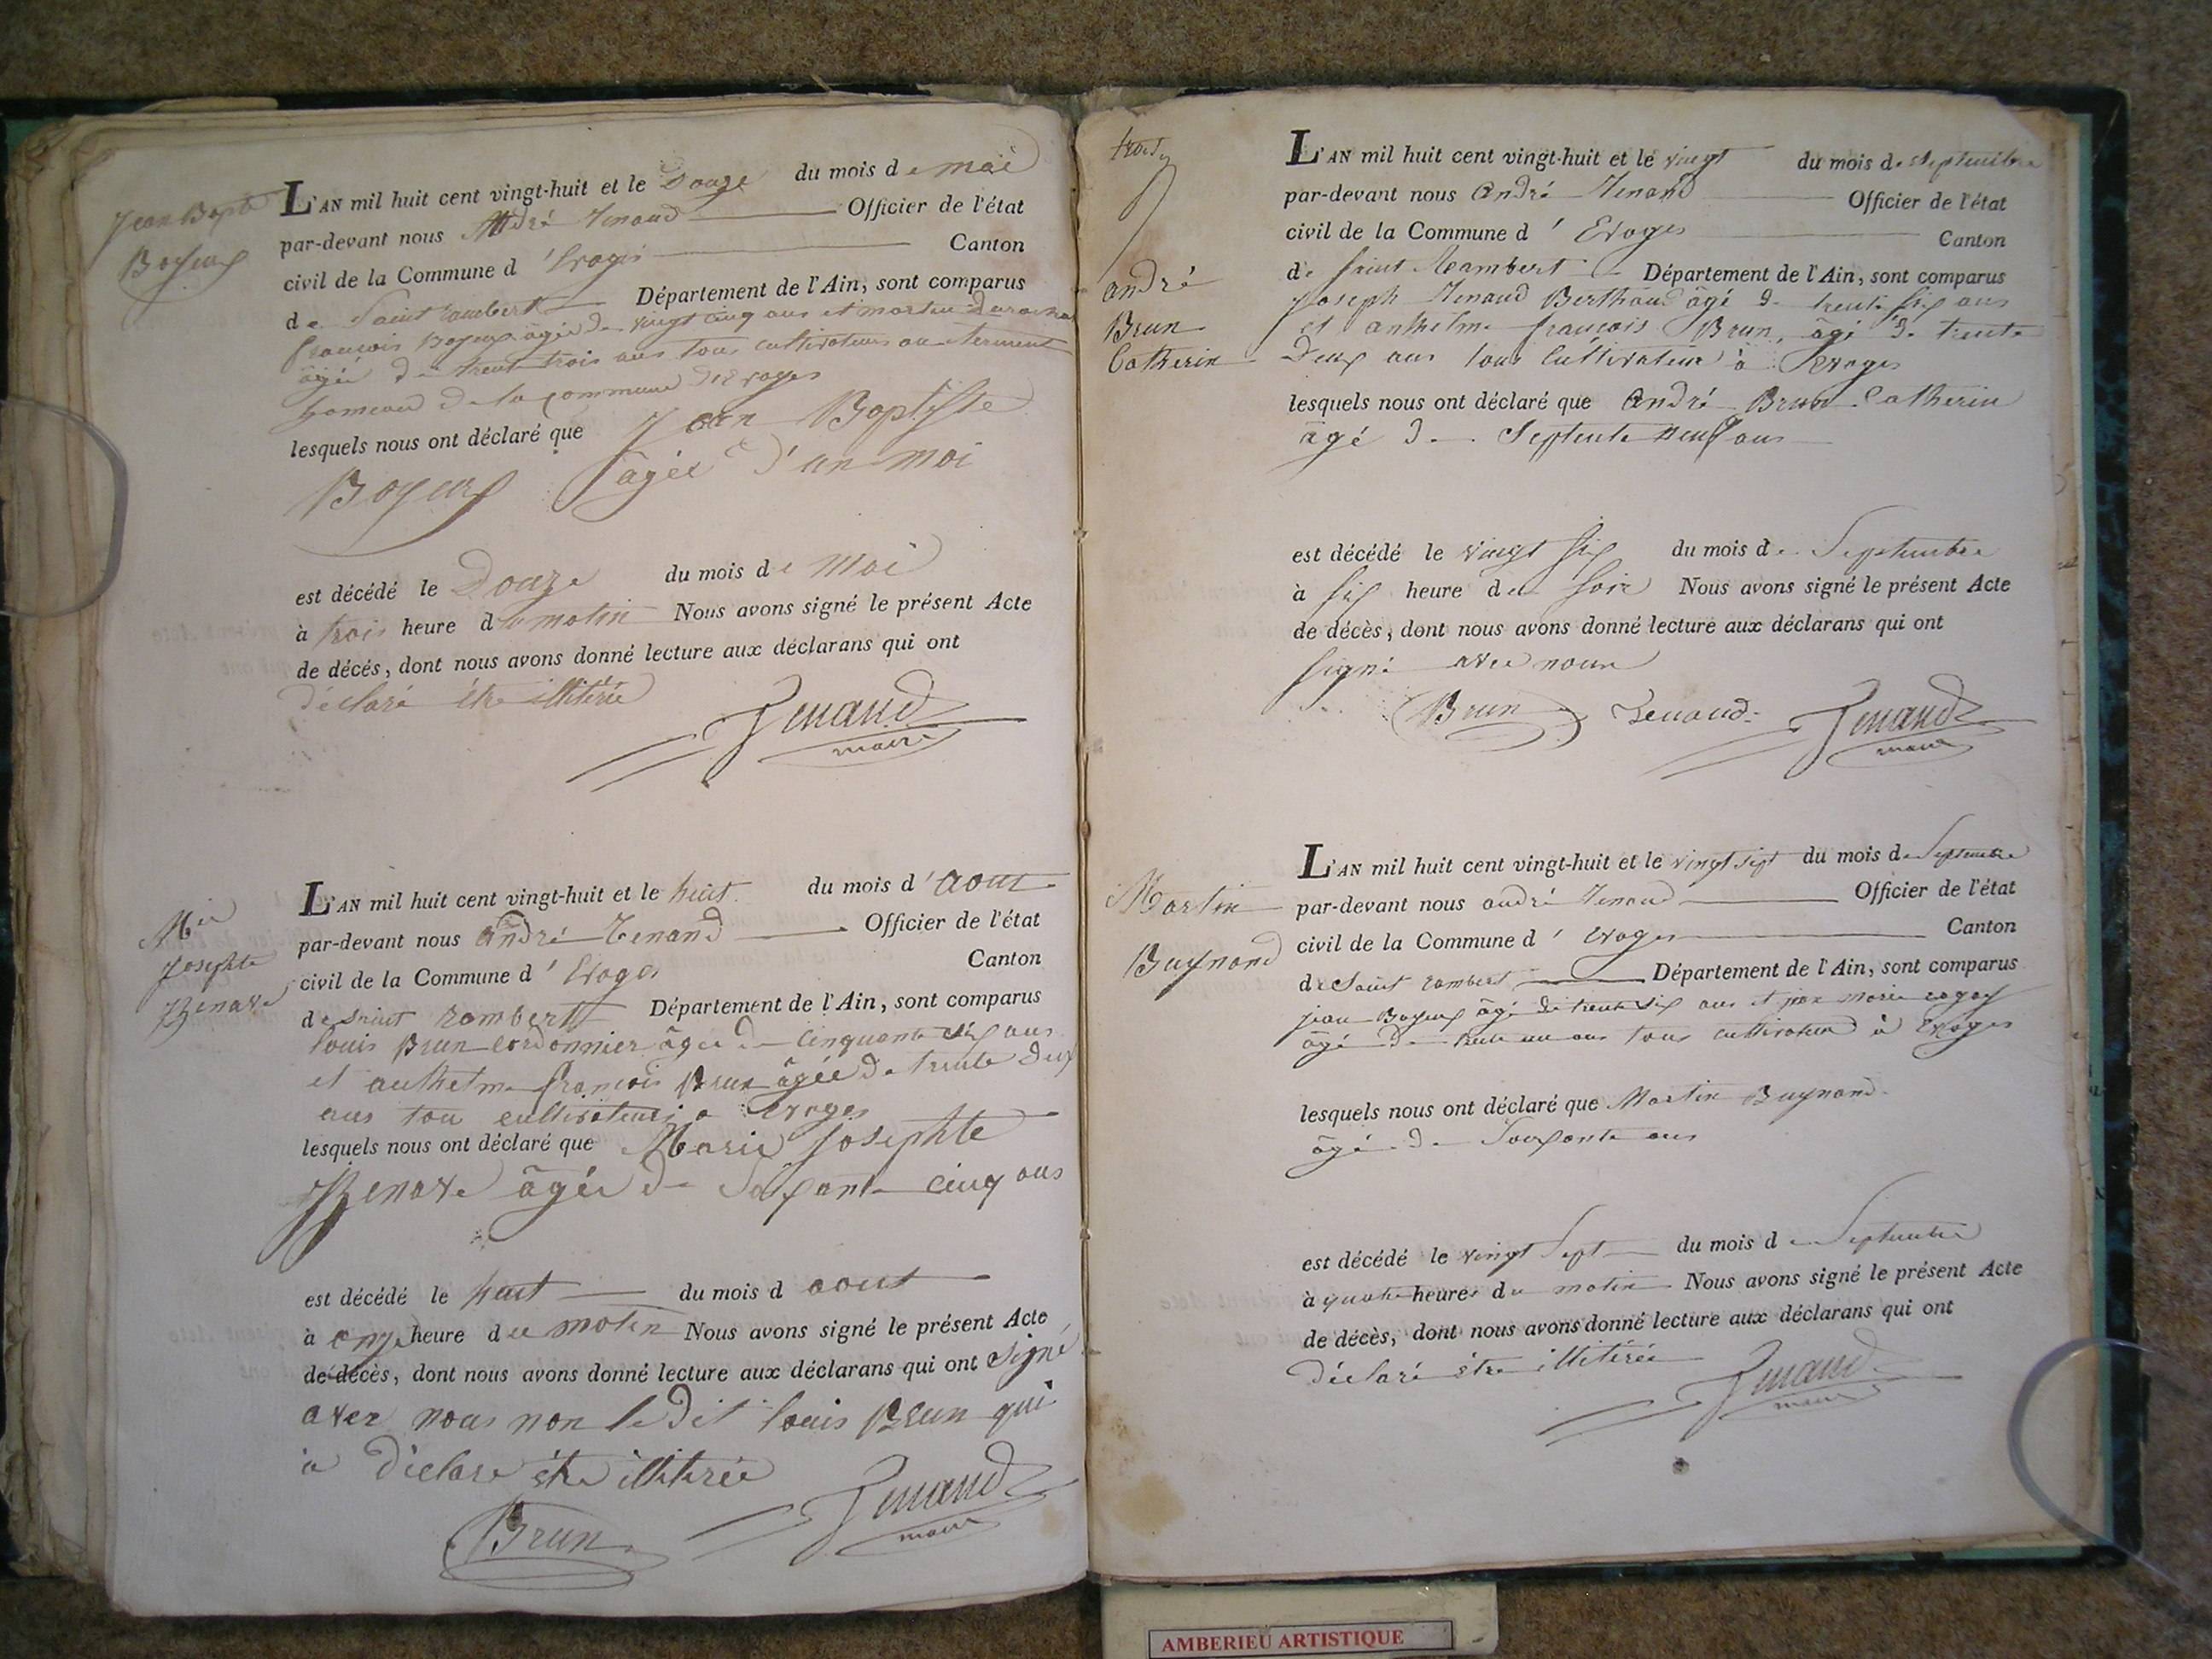 Jean Bapte
Boyeux
L'AN mil huit cent vingt-huit et le Douze du mois de mai
par-devant nous André Tenand Officier de l'état
civil de la Commune d'Evoges Canton
de Saint rambert Département de l'Ain, sont comparus
françois Boyeux âgée de vingt cinq ans et martin
âgée de trente trois ans tous cultivateurs au
hameau de la commune d'Evoges
lesquels nous ont déclaré que Jean Baptiste
Boyeux âgée d'un moi
est décédé le Douze du mois de Mai
à trois heure du matin Nous avons signé le présent Acte
de décès, dont nous avons donné lecture aux déclarans qui ont
déclaré être illitérée
Tenand
maire
Mie
Josephte
L'AN mil huit cent vingt-huit et le huit du mois d'aout
par-devant nous André Tenand Officier de l'état
civil de la Commune d'Evoges Canton
de saint rambert Département de l'Ain, sont comparus
louis Brun cordonnier âgée de Cinquante six ans
et anthelme françois Brun âgée de trente deux
ans tou cultivateurs a Evoges
lesquels nous ont déclaré que Marie Josephte
âgée de Soixante cinq ans
est décédé le huit du mois d aout
à onze heure du matin Nous avons signé le présent Acte
de décès, dont nous avons donné lecture aux déclarans qui ont signé
avec nous non le dit louis Brun qui
à déclare être illitérée
Brun Tenand
maire
André
Brun
Catherin
L'AN mil huit cent vingt-huit et le vingt du mois de septembre
par-devant nous André Tenand Officier de l'état
civil de la Commune d'Evoges Canton
de saint Rambert Département de l'Ain, sont comparus
Joseph Tenand Berthaud âgé de trente six ans
et anthelme françois Brun, âgé de trente
Deux ans tous Cultivateur à Evoges
lesquels nous ont déclaré que André Brun Catherin
âgé de Septente neuf ans
est décédé le vingt six du mois de Septembre
à six heure du soir Nous avons signé le présent Acte
de décès, dont nous avons donné lecture aux déclarans qui ont
signé avec nous
Brun Tenand Tenand
maire
Martin
Buynand
L'AN mil huit cent vingt-huit et le vingt sept du mois de Septembre
par-devant nous andré Tenand Officier de l'état
civil de la Commune d'Evoges Canton
de Saint rambert Département de l'Ain, sont comparus
jean Boyeux âgé de trente six ans et marie
âgé de trente un ans tous cultivateur à Evoges
lesquels nous ont déclaré que Martin Buynand
âgé de Soixante ans
est décédé le vingt Sept du mois de Septembre
à quatre heures du matin Nous avons signé le présent Acte
de décès, dont nous avons donné lecture aux déclarans qui ont
déclaré être illitérée
Tenand
maire
AMBERIEU ARTISTIQUE